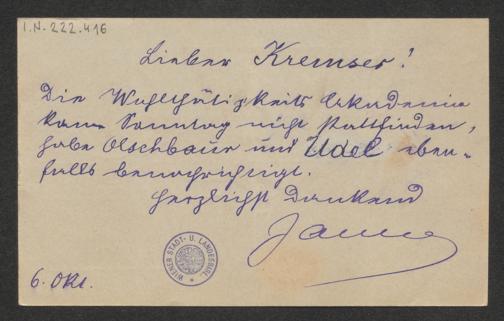 I.N. 222.416
Lieber Kremser!
Die Wohlthätigkeits Akademie
kann Sonntag nicht stattfinden,
habe Olschbaur und Udel eben-
falls benachrichtigt.
Herzlichst Dankend
WIENER STADT- U. LANDESBIBL.
6. Okt.